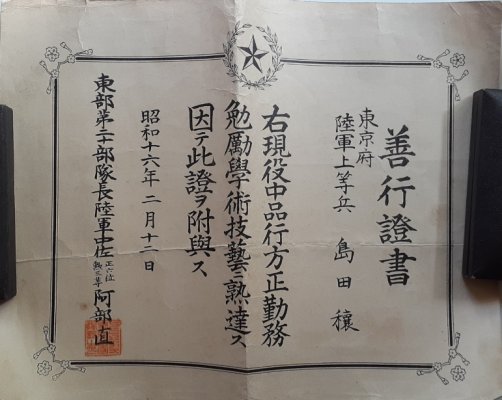 善行證書
東京府
陸軍上等兵 島田穰
右現役中品行方正勤務
勉勵學術技藝熟達ス
因テ此證ヲ附與ス
昭和十六年二月十二日
東部第二十部隊長陸軍中佐正六位勲三等阿部直